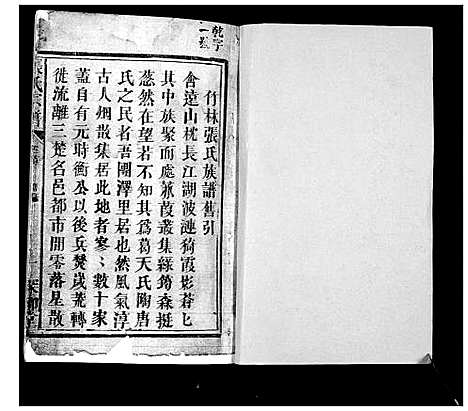 乾字
一卷
竹林張氏族譜舊引
含遠山枕長江湖波漣漪霞影蒼匕
其中族聚而處蒹葭叢集綠篛森挺
蔥然在望若不知其為葛天氏陶唐
氏之民者吾團澤里居也然風氣淳
古人烟散集居此地者寥〻數十家
蓋自有元時衝公以後兵燹歲荒轉
徙流離三楚名邑都市開零落星散
張氏宗譜